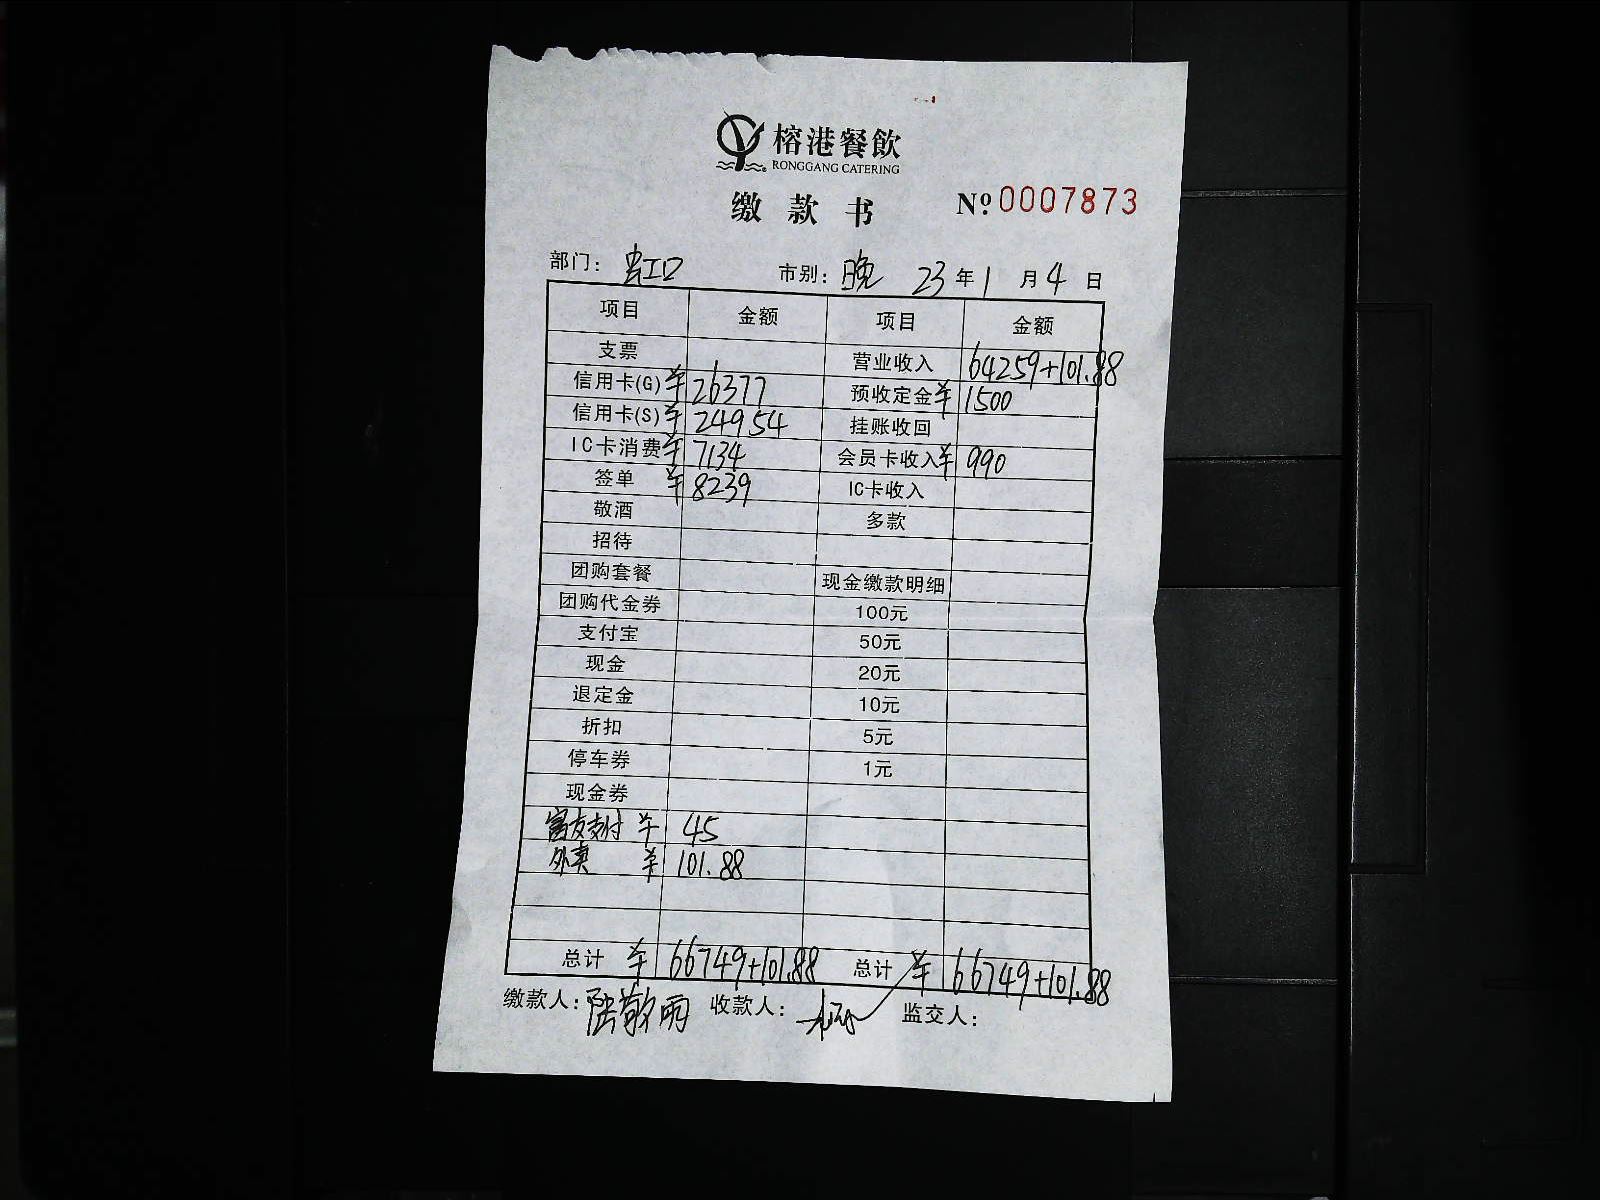 榕港餐飲
RONGGANG CATERING
缴款书 №0007873
部门: 虹口 市别: 晚 23年1月4日
项目 金额 项目 金额
支票 营业收入 64259+101.88
信用卡(G) ¥26377 预收定金 ¥1500
信用卡(S) ¥24954 挂账收回
IC卡消费 ¥7134 会员卡收入 ¥990
签单 ¥8239 IC卡收入
敬酒 多款
招待
团购套餐 现金缴款明细
团购代金券 100元
支付宝 50元
现金 20元
退定金 10元
折扣 5元
停车券 1元
现金券
富友支付 ¥45
外卖 ¥101.88
总计 ¥66749+101.88 总计 ¥66749+101.88
缴款人: 陆敬雨 收款人: 监交人: